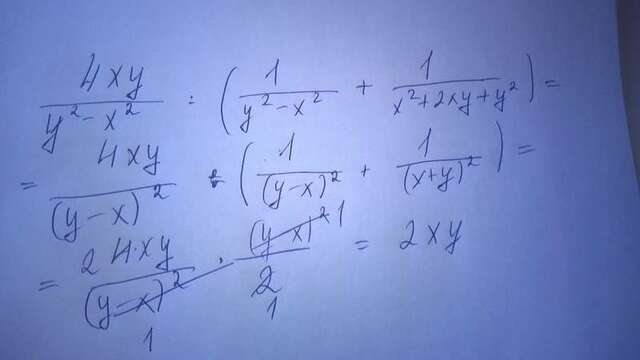 4xy/(y²-x²) : (1/(y²-x²) + 1/(x²+2xy+y²)) =
= 4xy/(y-x)² : (1/(y-x)² + 1/(x+y)²) =
= 2 4xy/(y-x)² 1 · (y-x)² 1/2 1 = 2xy